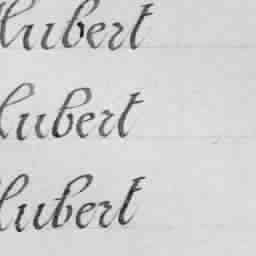 Hubert
Hubert
Hubert